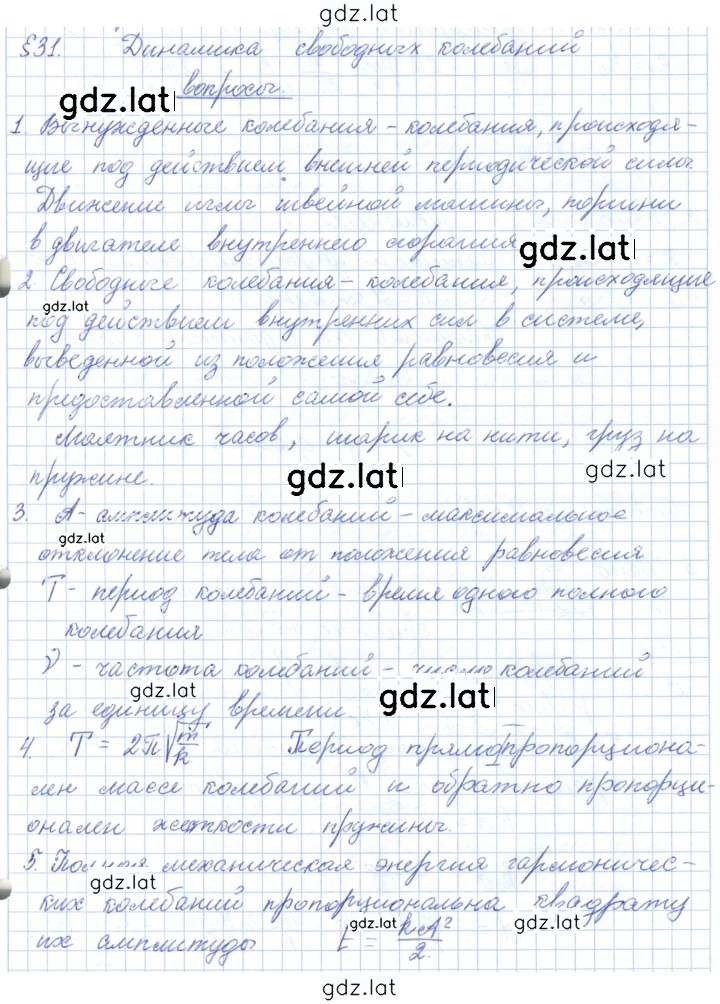 gdz.lat
§31. Динамика свободных колебаний
gdz.lat
вопросы.
1. Вынужденные колебания - колебания, происходя-
щие под действием внешней периодической силы.
Движение иглы швейной машины, поршни
в двигателе внутреннего сгорания
gdz.lat
2. Свободные колебания - колебания, происходящие
gdz.lat
под действием внутренних сил в системе,
выведенной из положения равновесия и
предоставленной самой себе.
Маятник часов, шарик на нити, груз на
пружине.
gdz.lat
3. A - амплитуда колебаний - максимальное
gdz.lat
отклонение тела от положения равновесия
T - период колебаний - время одного полного
колебания
ν - частота колебаний - число колебаний
gdz.lat
gdz.lat
за единицу времени.
4. T = 2π√m/k Период прямо пропорциона-
лен массе колебаний и обратно пропорци-
онален жесткости пружины.
5. Полная механическая энергия гармоничес-
gdz.lat
ких колебаний пропорциональна квадрату
gdz.lat
gdz.lat
их амплитуды E = kA²/2.
gdz.lat